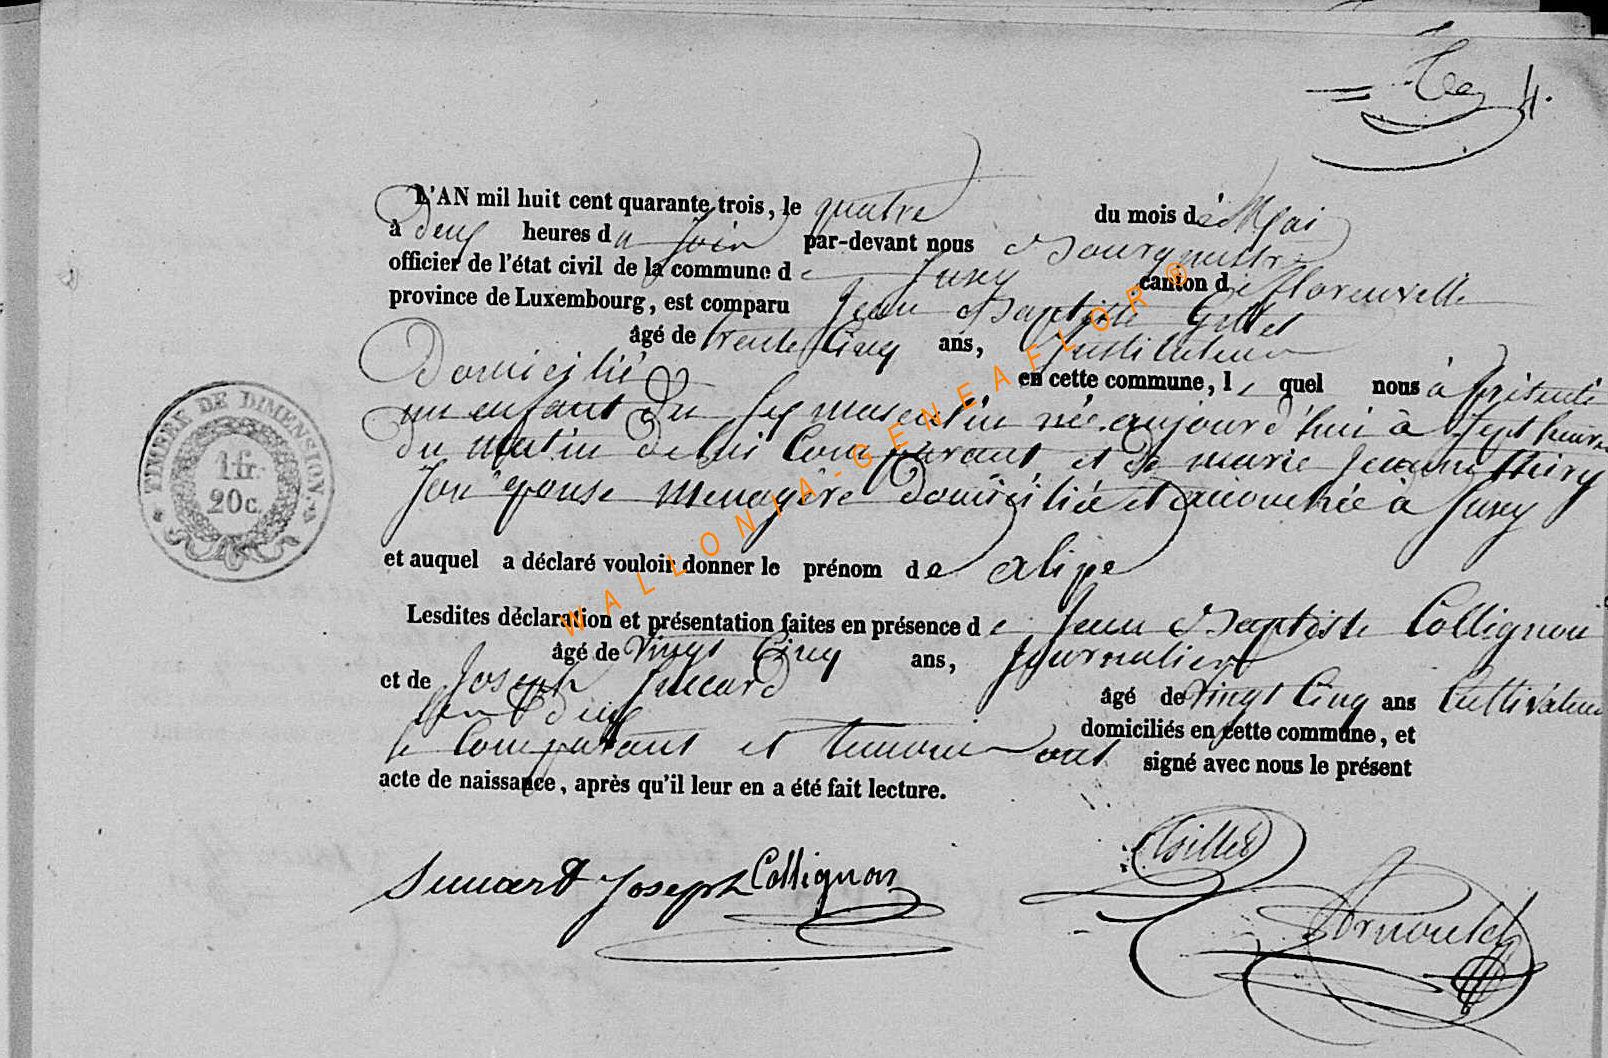 4.
L'AN mil huit cent quarante trois, le quatre du mois de Mai
à deux heures du soir par-devant nous Bourgmestre
officier de l'état civil de la commune de Suxy canton de florenville
province de Luxembourg, est comparu Jean Baptiste Gillet
âgé de trente cinq ans, Instituteur
Domicilié en cette commune, le quel nous à présenté
un enfant du sex masculin née aujourd'hui à sept heures
du matin de lui Comparant et de marie Jeanne thiry
son épouse menagère domiciliée et accouchée à Suxy
et auquel a déclaré vouloir donner le prénom de alipe
Lesdites déclaration et présentation faites en présence de Jean Baptiste Collignon
âgé de vingt Cinq ans, Journalier
et de Joseph âgé de vingt Cinq ans Cultivateur
deux domiciliés en cette commune, et
le Comparant et temoin ont signé avec nous le présent
acte de naissance, après qu'il leur en a été fait lecture.
TIMBRE DE DIMENSION
1 fr.
20 c.
WALLONIA-GENEAFLOR®
Joseph Collignon Gillet
Arnould